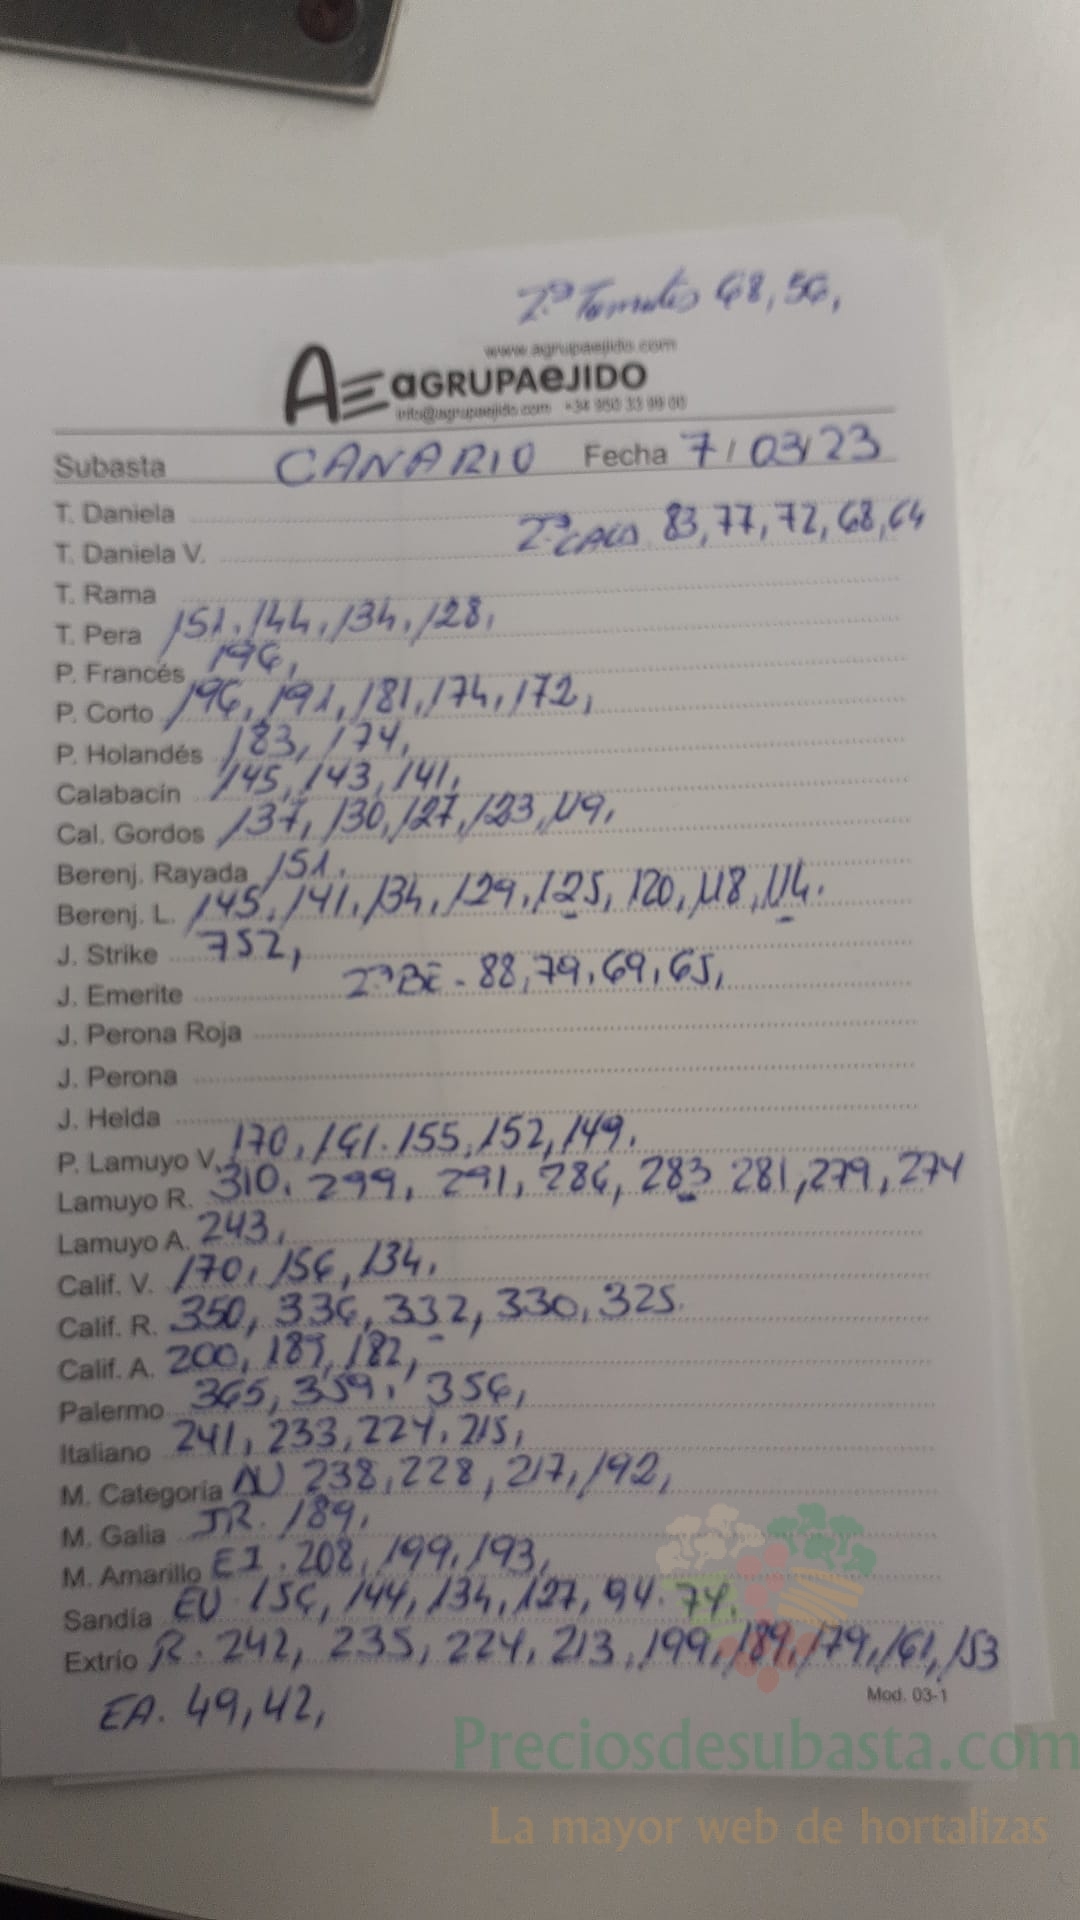 2ª Tomates 68, 56,
www.agrupaejido.com
AE AGRUPAEJIDO
info@agrupaejido.com +34 950 33 99 00
Subasta CANARIO Fecha 7/03/23
T. Daniela
2ª CALA 83, 77, 72, 68, 64
T. Daniela V.
T. Rama
T. Pera 151, 144, 134, 128,
P. Francés 196,
P. Corto 196, 191, 181, 174, 172,
P. Holandés 183, 174,
Calabacín 145, 143, 141,
Cal. Gordos 137, 130, 127, 123, 119,
Berenj. Rayada 151.
Berenj. L. 145, 141, 134, 129, 125, 120, 118, 114.
J. Strike 752,
J. Emerite 2ª BE - 88, 79, 69, 65,
J. Perona Roja
J. Perona
J. Helda
P. Lamuyo V. 170, 161. 155, 152, 149.
Lamuyo R. 310, 299, 291, 286, 283 281, 279, 274
Lamuyo A. 243,
Calif. V. 170, 156, 134,
Calif. R. 350, 336, 332, 330, 325.
Calif. A. 200, 189, 182,
Palermo 365, 359, 356,
Italiano 241, 233, 224, 215,
M. Categoría AU 238, 228, 217, 192,
M. Galia JR. 189,
M. Amarillo EI. 208, 199, 193,
Sandía EU 156, 144, 134, 127, 94. 74.
Extrio R. 242, 235, 224, 213, 199, 189, 179, 161, 153
Mod. 03-1
EA. 49, 42,
Preciosdesubasta.com
La mayor web de hortalizas